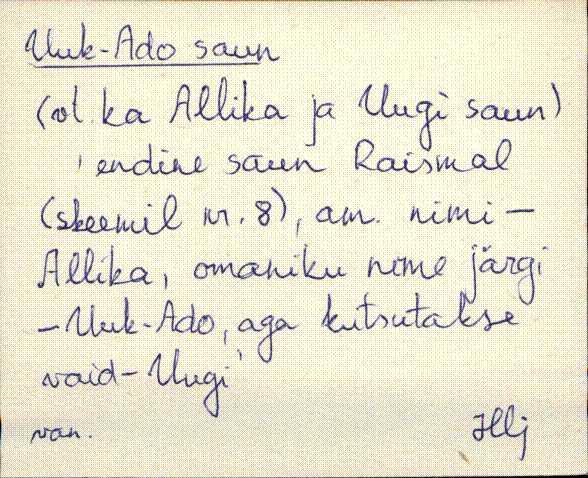 Uuk-Ado saun
(vt ka Allika ja Uugi saun)
, endine saun Raismal
(skeemil nr. 8), am. nimi –
Allika, omaniku nime järgi
– Uuk-Ado, aga kutsutakse
vaid – Uugi
van. Hlj